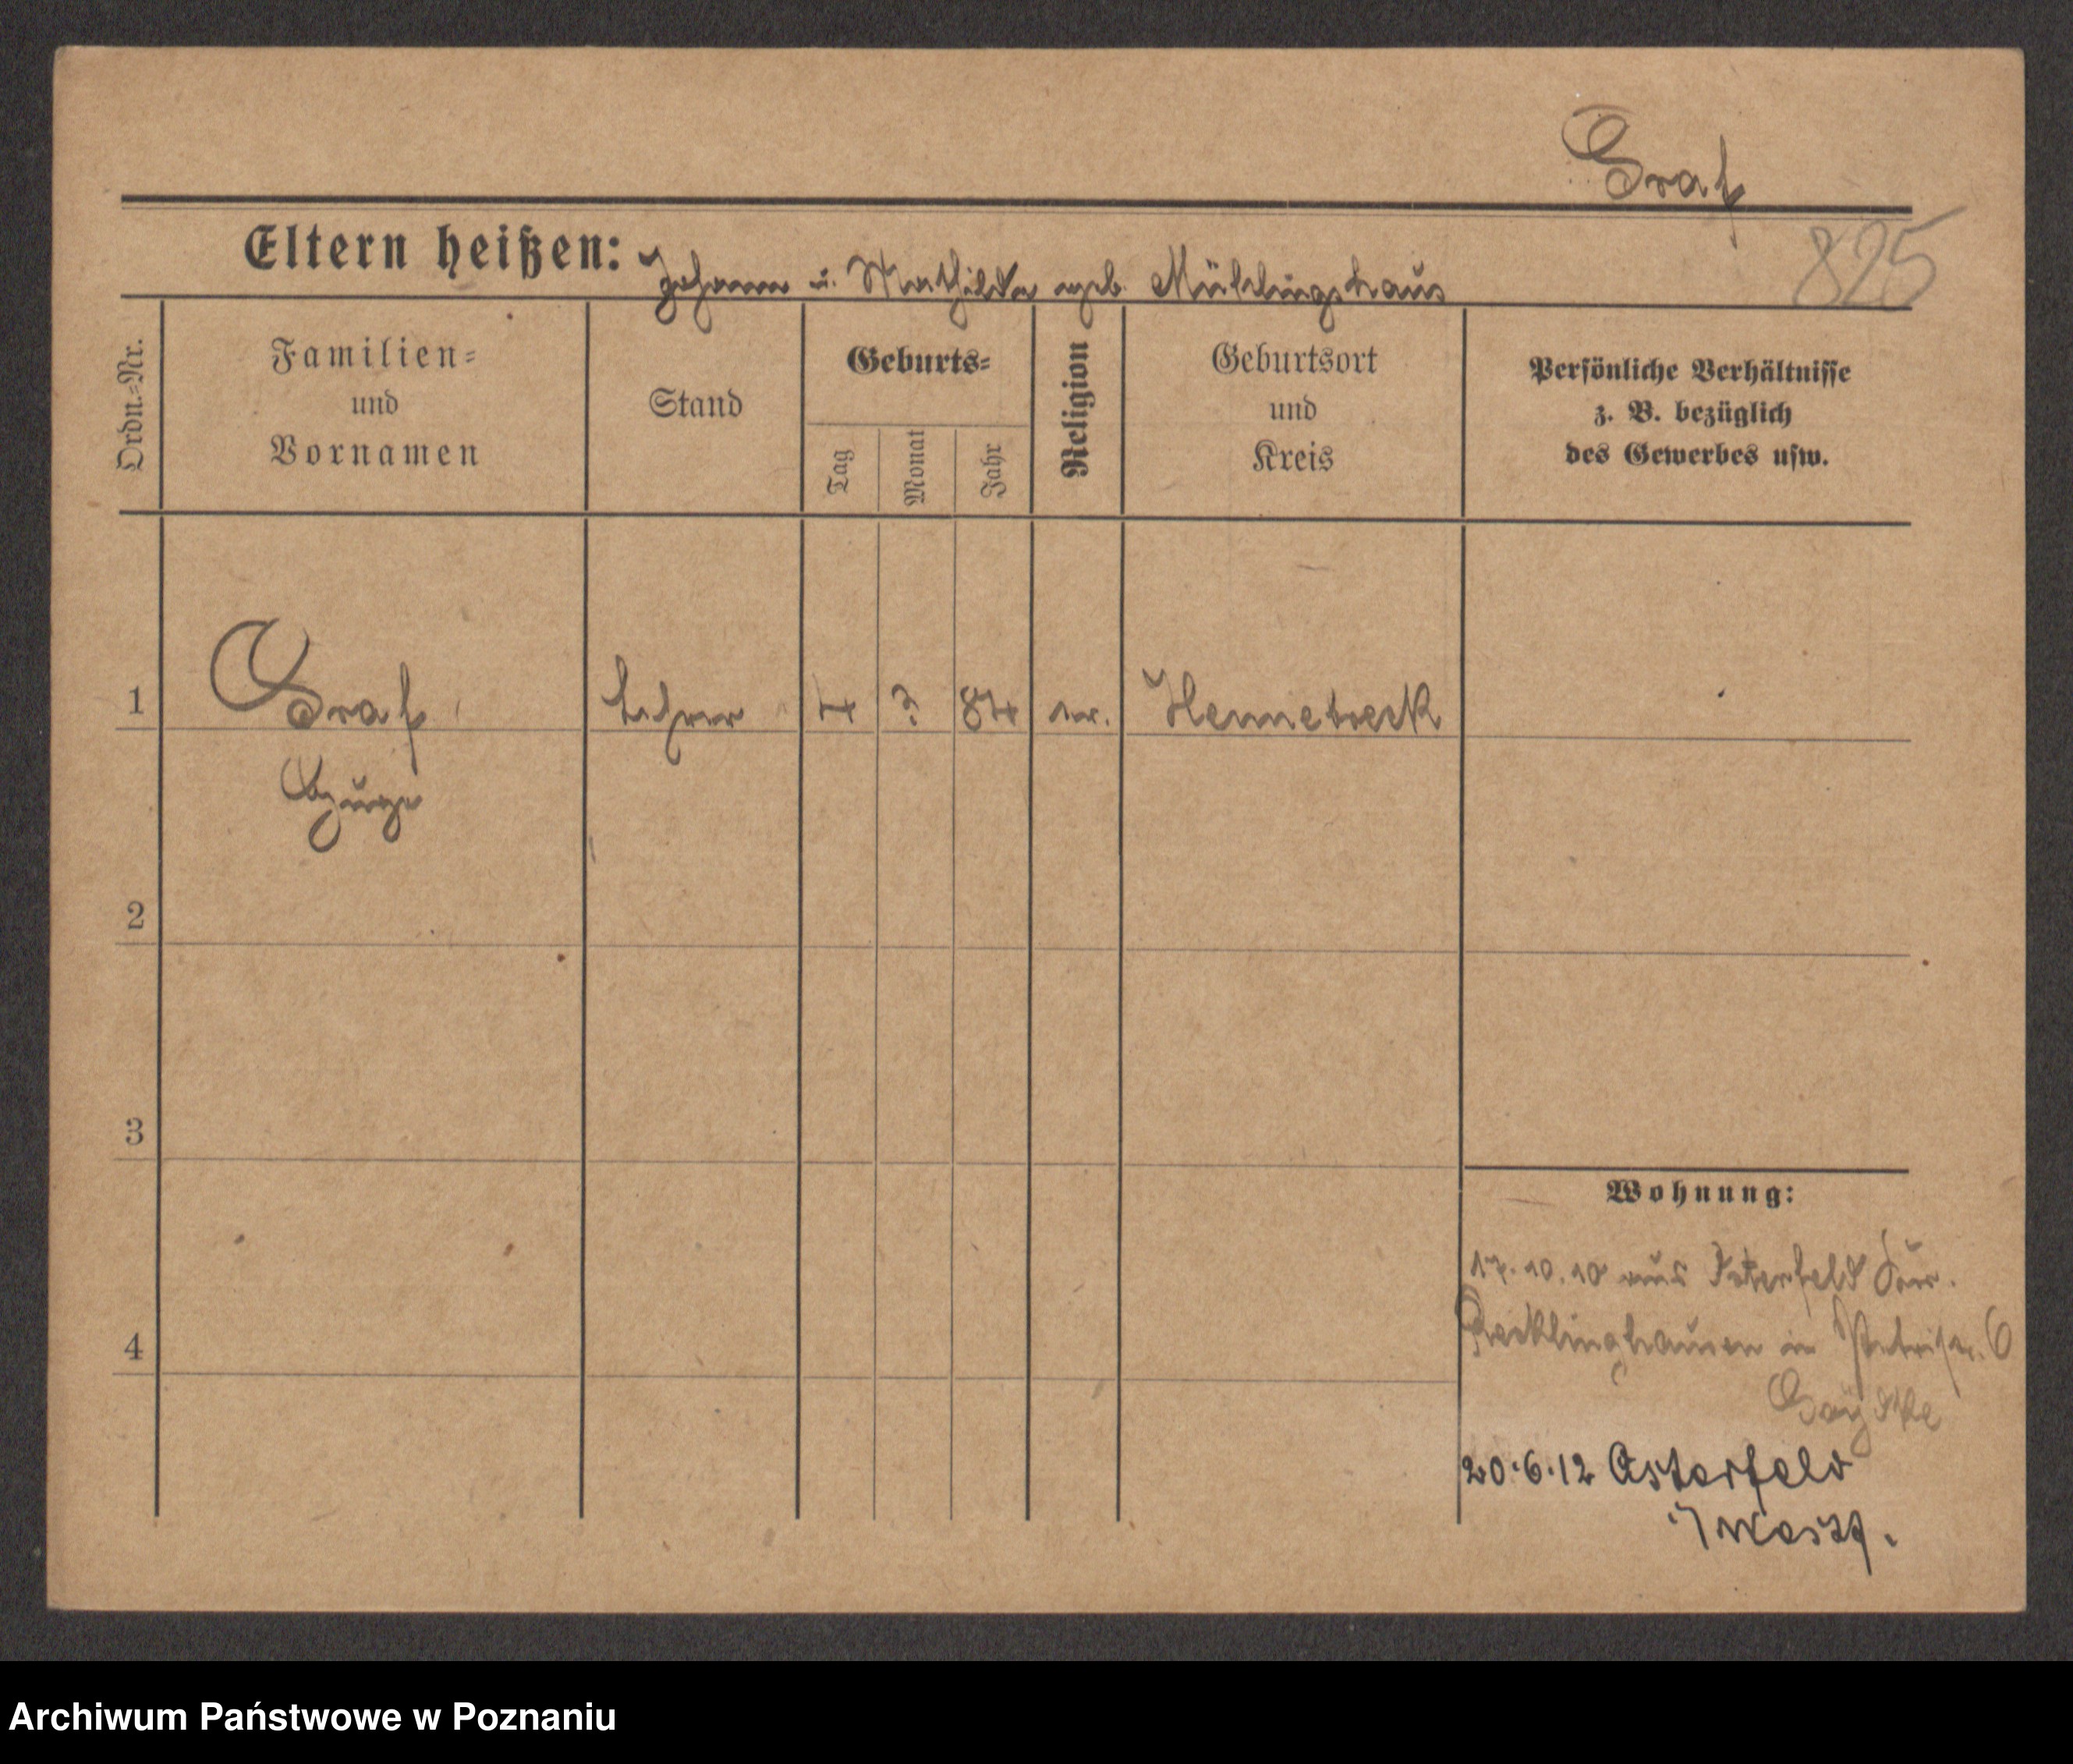 Graf
Eltern heißen: Johann u. Mathilde geb. Mühlingshaus
825
Ordn.=Nr.
Familien=
und
Vornamen
Stand
Geburts=
Tag
Monat
Jahr
Religion
Geburtsort
und
Kreis
Persönliche Verhältnisse
z. B. bezüglich
des Gewerbes usw.
1
Graf
Lehrer
4
2
84
ev.
2
3
4
Wohnung:
17.10.10 aus Osterfeld
Recklinghausen in
20.6.12 Osterfeld
Archiwum Państwowe w Poznaniu